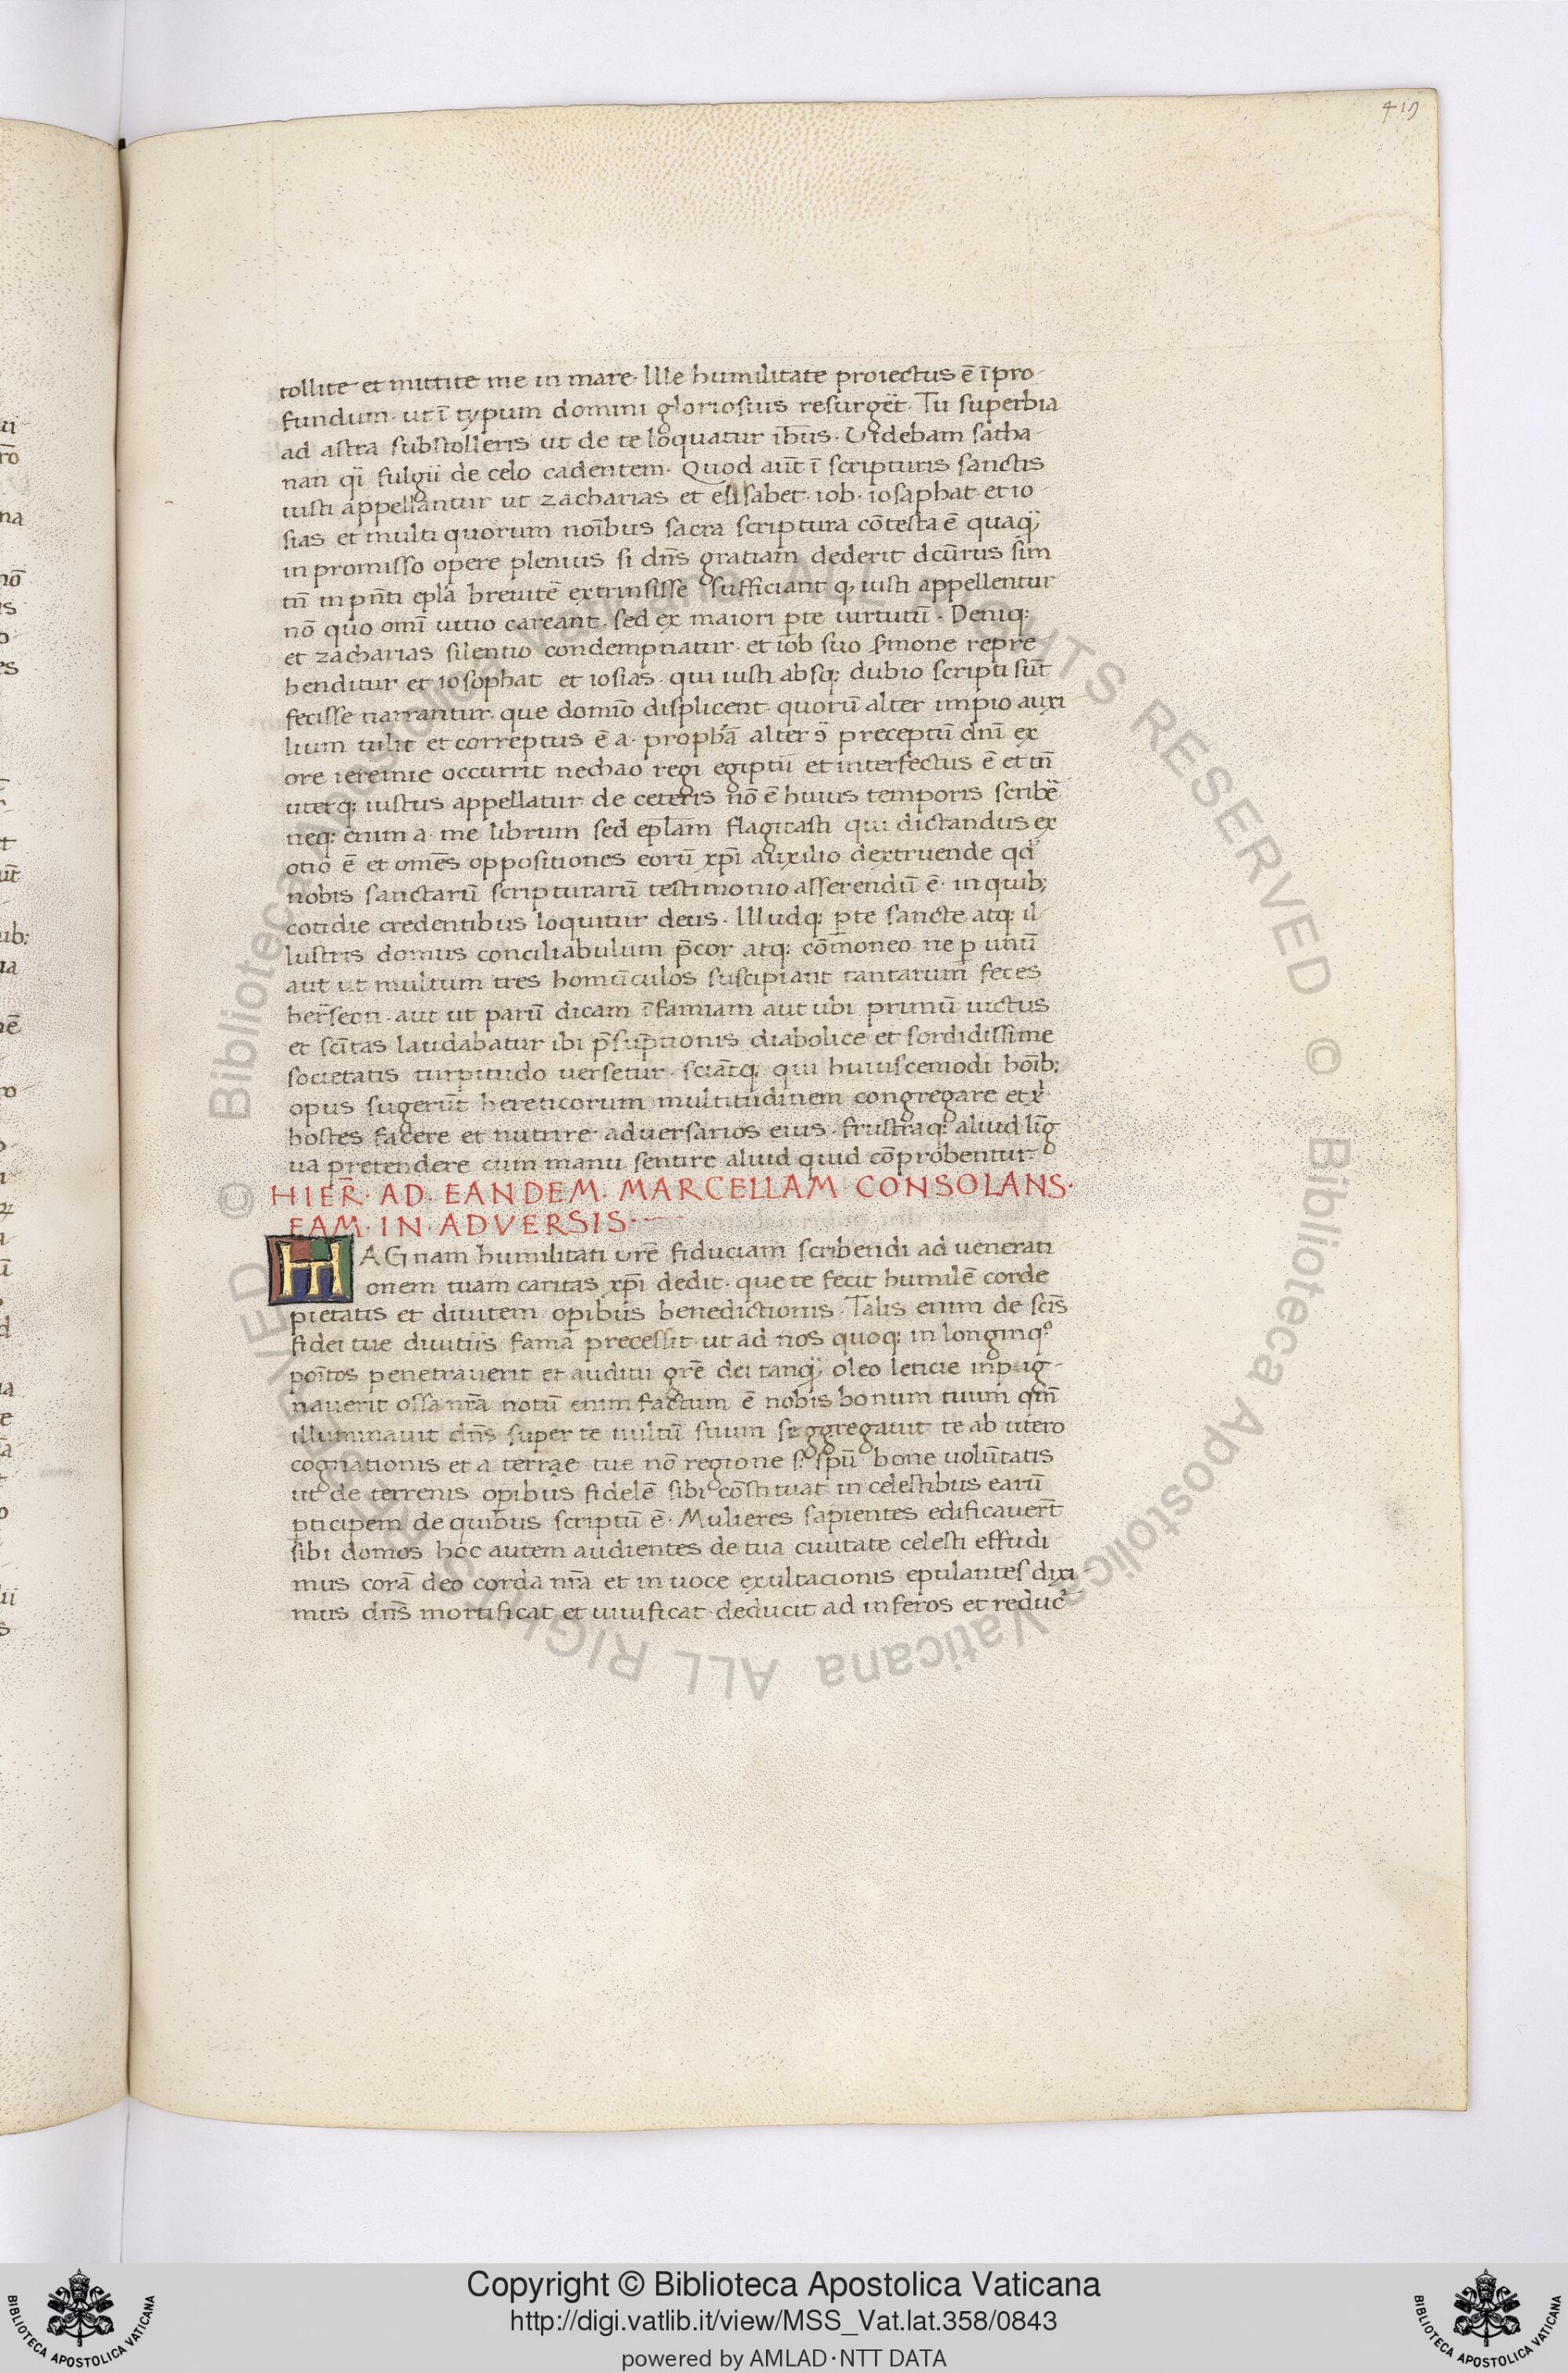 419
tollite et mittite me in mare. Ille humilitate proiectus ē ī pro-
fundum. ut ī typum domini gloriosius resurget. Tu superbia
ad astra substolleris ut de te loquatur ihus. Videbam satha-
nan q̄i fulgũ de celo cadentem. Quod aūt ī scripturis sanctis
iusti appellantur ut zacharias et elisabet. iob. iosaphat. et io-
sias et multi quorum noībus sacra scriptura cōtesta ē quaq̄
in promisso opere plenius si dn̄s gratiam dederit dcūrus sim
tn̄ in pn̄ti epl̄a breuitē extrinsisse sufficiant q, iusti appellentur
nō quo omī uitio careant. sed ex maiori pte uirtutū. Deniq:
et zacharias silentio condempnatur. et iob suo s̄mone repre
henditur et iosophat et iosias. qui iusti absq: dubio scripti sūt
fecisse narrantur. que domīo displicent. quorū alter impio auxi
lium tulit et correptus ē a. prophā alter ɔ̄ preceptū dnī ex
ore ieremie occurrit nechao regi egiptū et interfectus ē et tn̄
uterq: iustus appellatur. de ceteris nō ē huius temporis scribē
neq: enim a. me librum sed epl̄am flagitasti qui dictandus ex
otio ē et omēs oppositiones eorū xp̄i auxilio dextruende qd
nobis sanctarū scripturarū testimonio asserendū ē. in quib;
cotidie credentibus loquitur deus. Illudq: pte sancte atq: il-
lustris domus conciliabulum p̄cor atq: cōmoneo. ne p unū
aut ut multum tres homūculos suscipiant tantarum feces
her̄seon. aut ut parū dicam īfamiam aut ubi primū uictus
et scītas laudabatur ibi p̄sūptionis diabolice et sordidissime
societatis turpitudo uersetur. sciātq: qui huiuscemodi hoīb;
opus sugerūt hereticorum multitudinem congregare et x̄
hostes facere et nutrire aduersarios eius. frustraq: aliud līg
ua pretendere cum manu sentire aliud quid cōprobentur.
HIER̄. AD. EANDEM. MARCELLAM CONSOLANS.
EAM. IN. ADVERSIS.
MAGnam humilitati vr̄e fiduciam scribendi ad uenerati
onem tuam caritas xp̄i dedit. que te fecit humilē corde
pietatis et diuitem opibus benedictionis. Talis enim de scīs
fidei tue diuitiis fama precessit. ut ad nos quoq: in longinq°
poītos penetrauerit et auditu gr̄e dei tanq̄ oleo leticie inpīg-
nauerit ossa nr̄a notū enim factum ē nobis bonum tuum qm̄
illuminauit dn̄s super te uultū suum seggregauit te ab utero
cognationis et a terrae tue nō regione s; spū bone uolūtatis
ut de terrenis opibus fidelē sibi cōstituat in celestibus earū
pticipem de quibus scriptū ē. Mulieres sapientes edificauer̄t
sibi domos hoc autem audientes de tua ciuitate celesti effudi
mus corā deo corda nr̄a et in uoce exultacionis epulantes dixi-
mus dn̄s mortificat et uiuificat. deducit ad inferos et reduc̄
Copyright © Biblioteca Apostolica Vaticana
http://digi.vatlib.it/view/MSS_Vat.lat.358/0843
powered by AMLAD·NTT DATA
BIBLIOTECA APOSTOLICA VATICANA
BIBLIOTECA APOSTOLICA VATICANA
© Biblioteca Apostolica Vaticana ALL RIGHTS RESERVED © Biblioteca Apostolica Vaticana ALL RIGHTS RESERVED